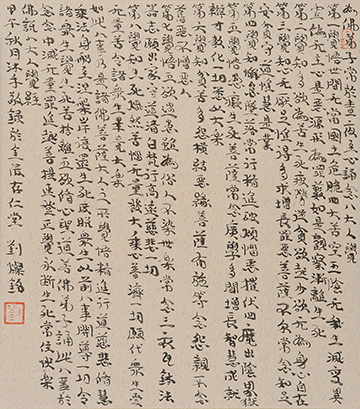 為佛弟子常於晝夜至心誦念八大人覺
第一覺悟世間无常國土危脆四大苦空五陰无我生滅變異
虛偽无主心是惡源形為罪藪如是觀察漸離生死
第二覺知多欲為苦生死疲勞從貪欲起少欲无為身心自在
第三覺知心无厭足惟得多求增長罪惡菩薩不尒常念知足
安貧守道惟慧是業
第四覺知懈怠墜落常行精進破煩惱惡摧伏四魔出陰界獄
第五覺悟愚癡生死菩薩常念廣學多聞增長智慧成就
辯才教化一切悉以大樂
第六覺知貧苦多怨橫結惡緣菩薩布施等念怨親不念
舊惡不憎惡人
第七覺悟五欲過患雖為俗人不染世樂常念三衣瓦鉢法
器志願出家守道清白梵行高遠慈悲一切
第八覺知生死熾然苦惱无量發大乘心普濟一切願代眾生受
无量苦令諸眾生畢竟大樂
如此八事乃是諸佛菩薩大人之所覺悟精進行道慈悲修慧
乘法身船至涅槃岸復還生死度脫眾生以前八事開導一切令
諸眾生覺生死苦捨離五欲修心聖道若佛弟子誦此八事於
念念中滅无量罪進趣菩提速登正覺永斷生死常住快樂
佛說八大人覺經
甲午秋月沐手敬錄於金陵在仁堂 劉燦銘